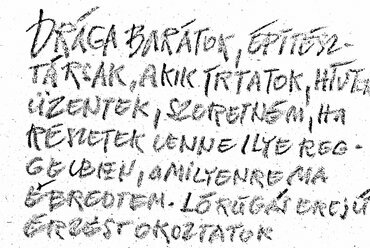 DRÁGA BARÁTOK, ÉPÍTÉSZ-
TÁRSAK, AKIK ÍRTATOK, HÍVTA
ÜZENTEK, SZERETNÉM, HA
RÉSZETEK LENNE ILYE REG-
GELBEN, AMILYENRE MA
ÉBREDTEM. LÓRÚGÁS EREJŰ
ÉRZÉST OKOZTATOK